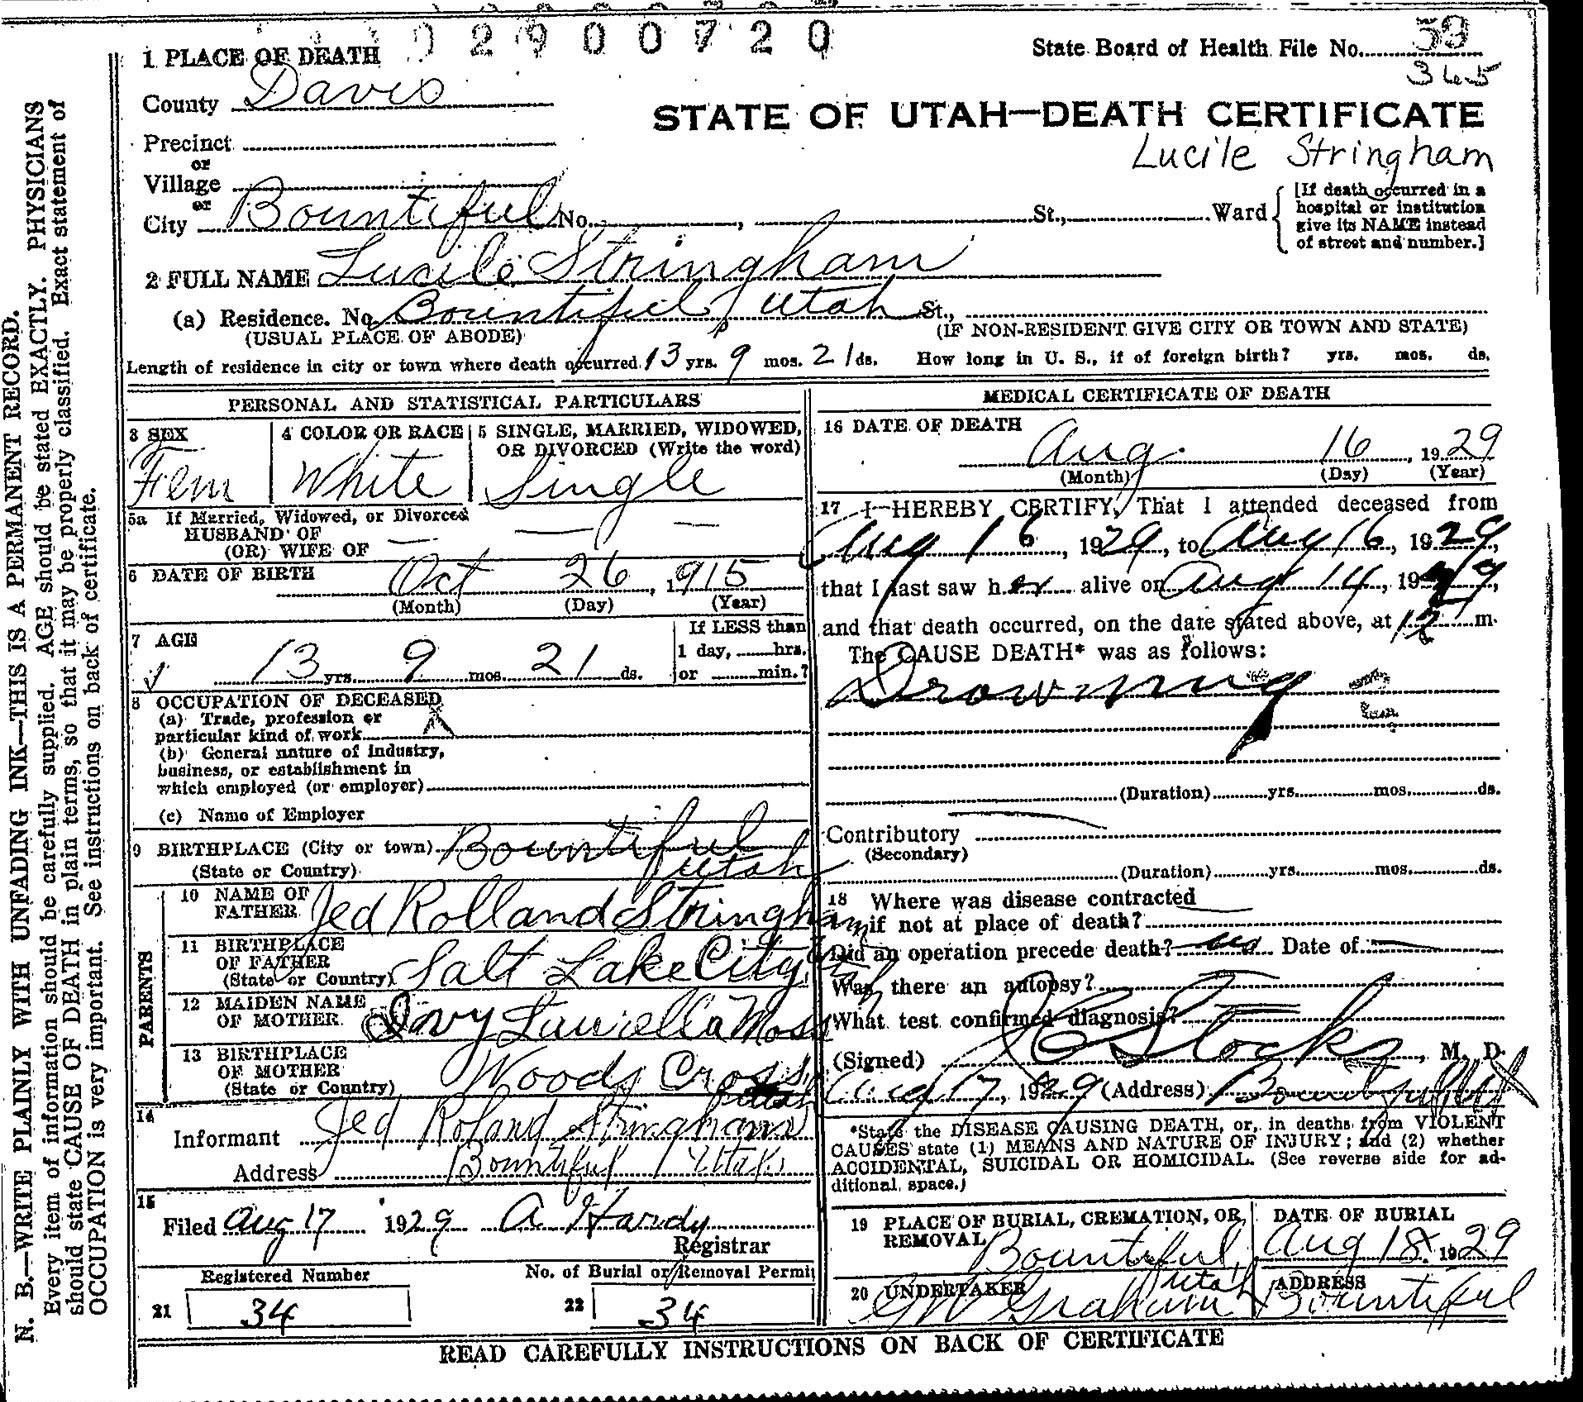 02900720
State Board of Health File No. 59
345
1 PLACE OF DEATH
County Davis
STATE OF UTAH—DEATH CERTIFICATE
Precinct
Lucile Stringham
or
Village
or
City Bountiful No. , St., Ward
[If death occurred in a
hospital or institution
give its NAME instead
of street and number.]
2 FULL NAME Lucile Stringham
(a) Residence. No. Bountiful, Utah St.,
(USUAL PLACE OF ABODE) (IF NON-RESIDENT GIVE CITY OR TOWN AND STATE)
Length of residence in city or town where death occurred 13 yrs. 9 mos. 21 ds. How long in U. S., if of foreign birth? yrs. mos. ds.
PERSONAL AND STATISTICAL PARTICULARS
3 SEX
Fem
4 COLOR OR RACE
White
5 SINGLE, MARRIED, WIDOWED,
OR DIVORCED (Write the word)
Single
5a If Married, Widowed, or Divorced
HUSBAND OF
(OR) WIFE OF
6 DATE OF BIRTH Oct 26, 1915
(Month) (Day) (Year)
7 AGE
13 yrs. 9 mos. 21 ds.
If LESS than
1 day, hrs.
or min.?
8 OCCUPATION OF DECEASED
(a) Trade, profession or
particular kind of work
(b) General nature of industry,
business, or establishment in
which employed (or employer)
(c) Name of Employer
9 BIRTHPLACE (City or town) Bountiful
(State or Country) Utah
PARENTS
10 NAME OF
FATHER Jed Rolland Stringham
11 BIRTHPLACE
OF FATHER
(State or Country) Salt Lake City, Utah
12 MAIDEN NAME
OF MOTHER Ivy Luriella Moss
13 BIRTHPLACE
OF MOTHER
(State or Country) Woods Cross
Utah
14
Informant Jed Roland Stringham
Address Bountiful Utah
15
Filed Aug 17 1929 A Hardy
Registrar
Registered Number
21 34
No. of Burial or Removal Permit
22 34
MEDICAL CERTIFICATE OF DEATH
16 DATE OF DEATH
Aug. 16, 1929
(Month) (Day) (Year)
17 I HEREBY CERTIFY, That I attended deceased from
Aug 16, 1929, to Aug 16, 1929,
that I last saw her alive on Aug 14, 1929,
and that death occurred, on the date stated above, at 12 m.
The CAUSE DEATH* was as follows:
Drowning
(Duration) yrs. mos. ds.
Contributory
(Secondary)
(Duration) yrs. mos. ds.
18 Where was disease contracted
if not at place of death?
Did an operation precede death? no Date of
Was there an autopsy?
What test confirmed diagnosis?
(Signed) J C Stocks, M. D.
Aug 17, 1929 (Address) Bountiful Ut
*State the DISEASE CAUSING DEATH, or, in deaths from VIOLENT
CAUSES state (1) MEANS AND NATURE OF INJURY; and (2) whether
ACCIDENTAL, SUICIDAL OR HOMICIDAL. (See reverse side for ad-
ditional space.)
19 PLACE OF BURIAL, CREMATION, OR
REMOVAL
Bountiful,
Utah
DATE OF BURIAL
Aug 18. 1929
20 UNDERTAKER
GW Graham
ADDRESS
Bountiful
READ CAREFULLY INSTRUCTIONS ON BACK OF CERTIFICATE
N. B.—WRITE PLAINLY WITH UNFADING INK—THIS IS A PERMANENT RECORD.
Every item of information should be carefully supplied. AGE should be stated EXACTLY. PHYSICIANS
should state CAUSE OF DEATH in plain terms, so that it may be properly classified. Exact statement of
OCCUPATION is very important. See instructions on back of certificate.